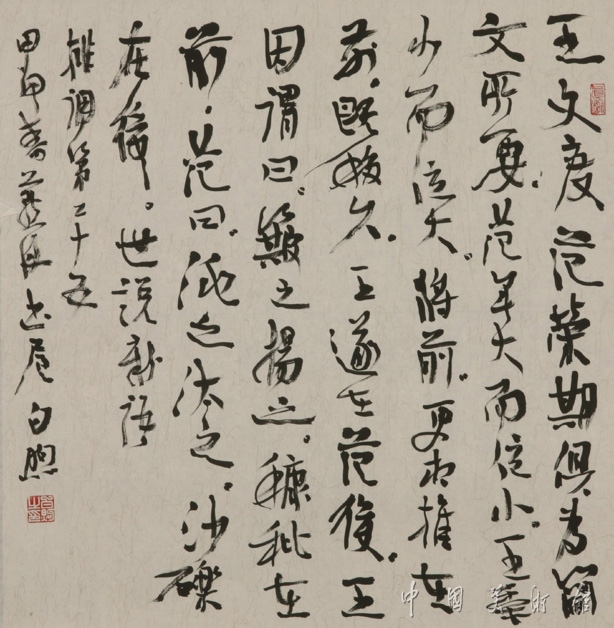 王文度范榮期俱為簡
文所要。范年大而位小。王年
小而位大。將前。更相推在
前。既移久。王遂在范後。王
因謂曰。簸之揚之。糠秕在
前。范曰。洮之汰之。沙礫
在後。世說新語
排調第二十五
甲申春 白煦
中國美術館